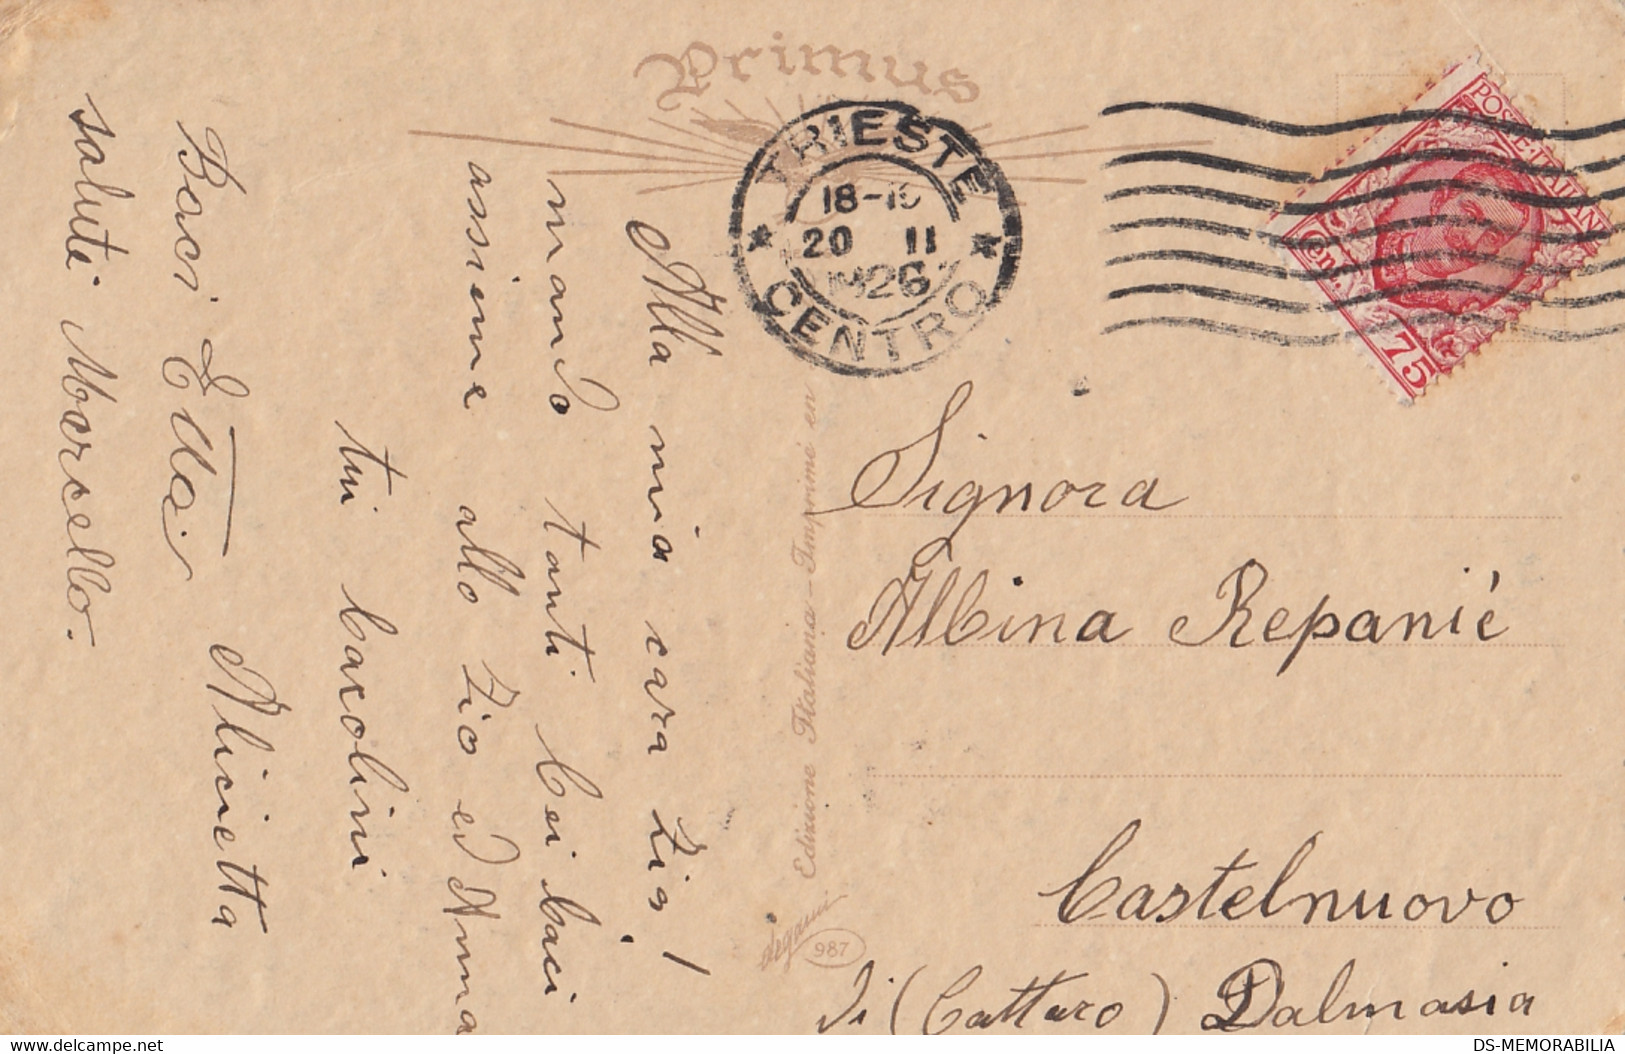 Primus
TRIESTE
18-19
20 II
1926
CENTRO
POSTE ITALIANE
Cent.
75
Alla mia cara Zia!
mando tanti bei baci
assieme allo Zio ed Anna
tui
Alicietta
Baci Etta
saluti Marcello.
Edizione Italiana - Imprimé en
Degami
987
Signora
Albina Repanić
Castelnuovo
di (Cattaro) Dalmasia
DS-MEMORABILIA